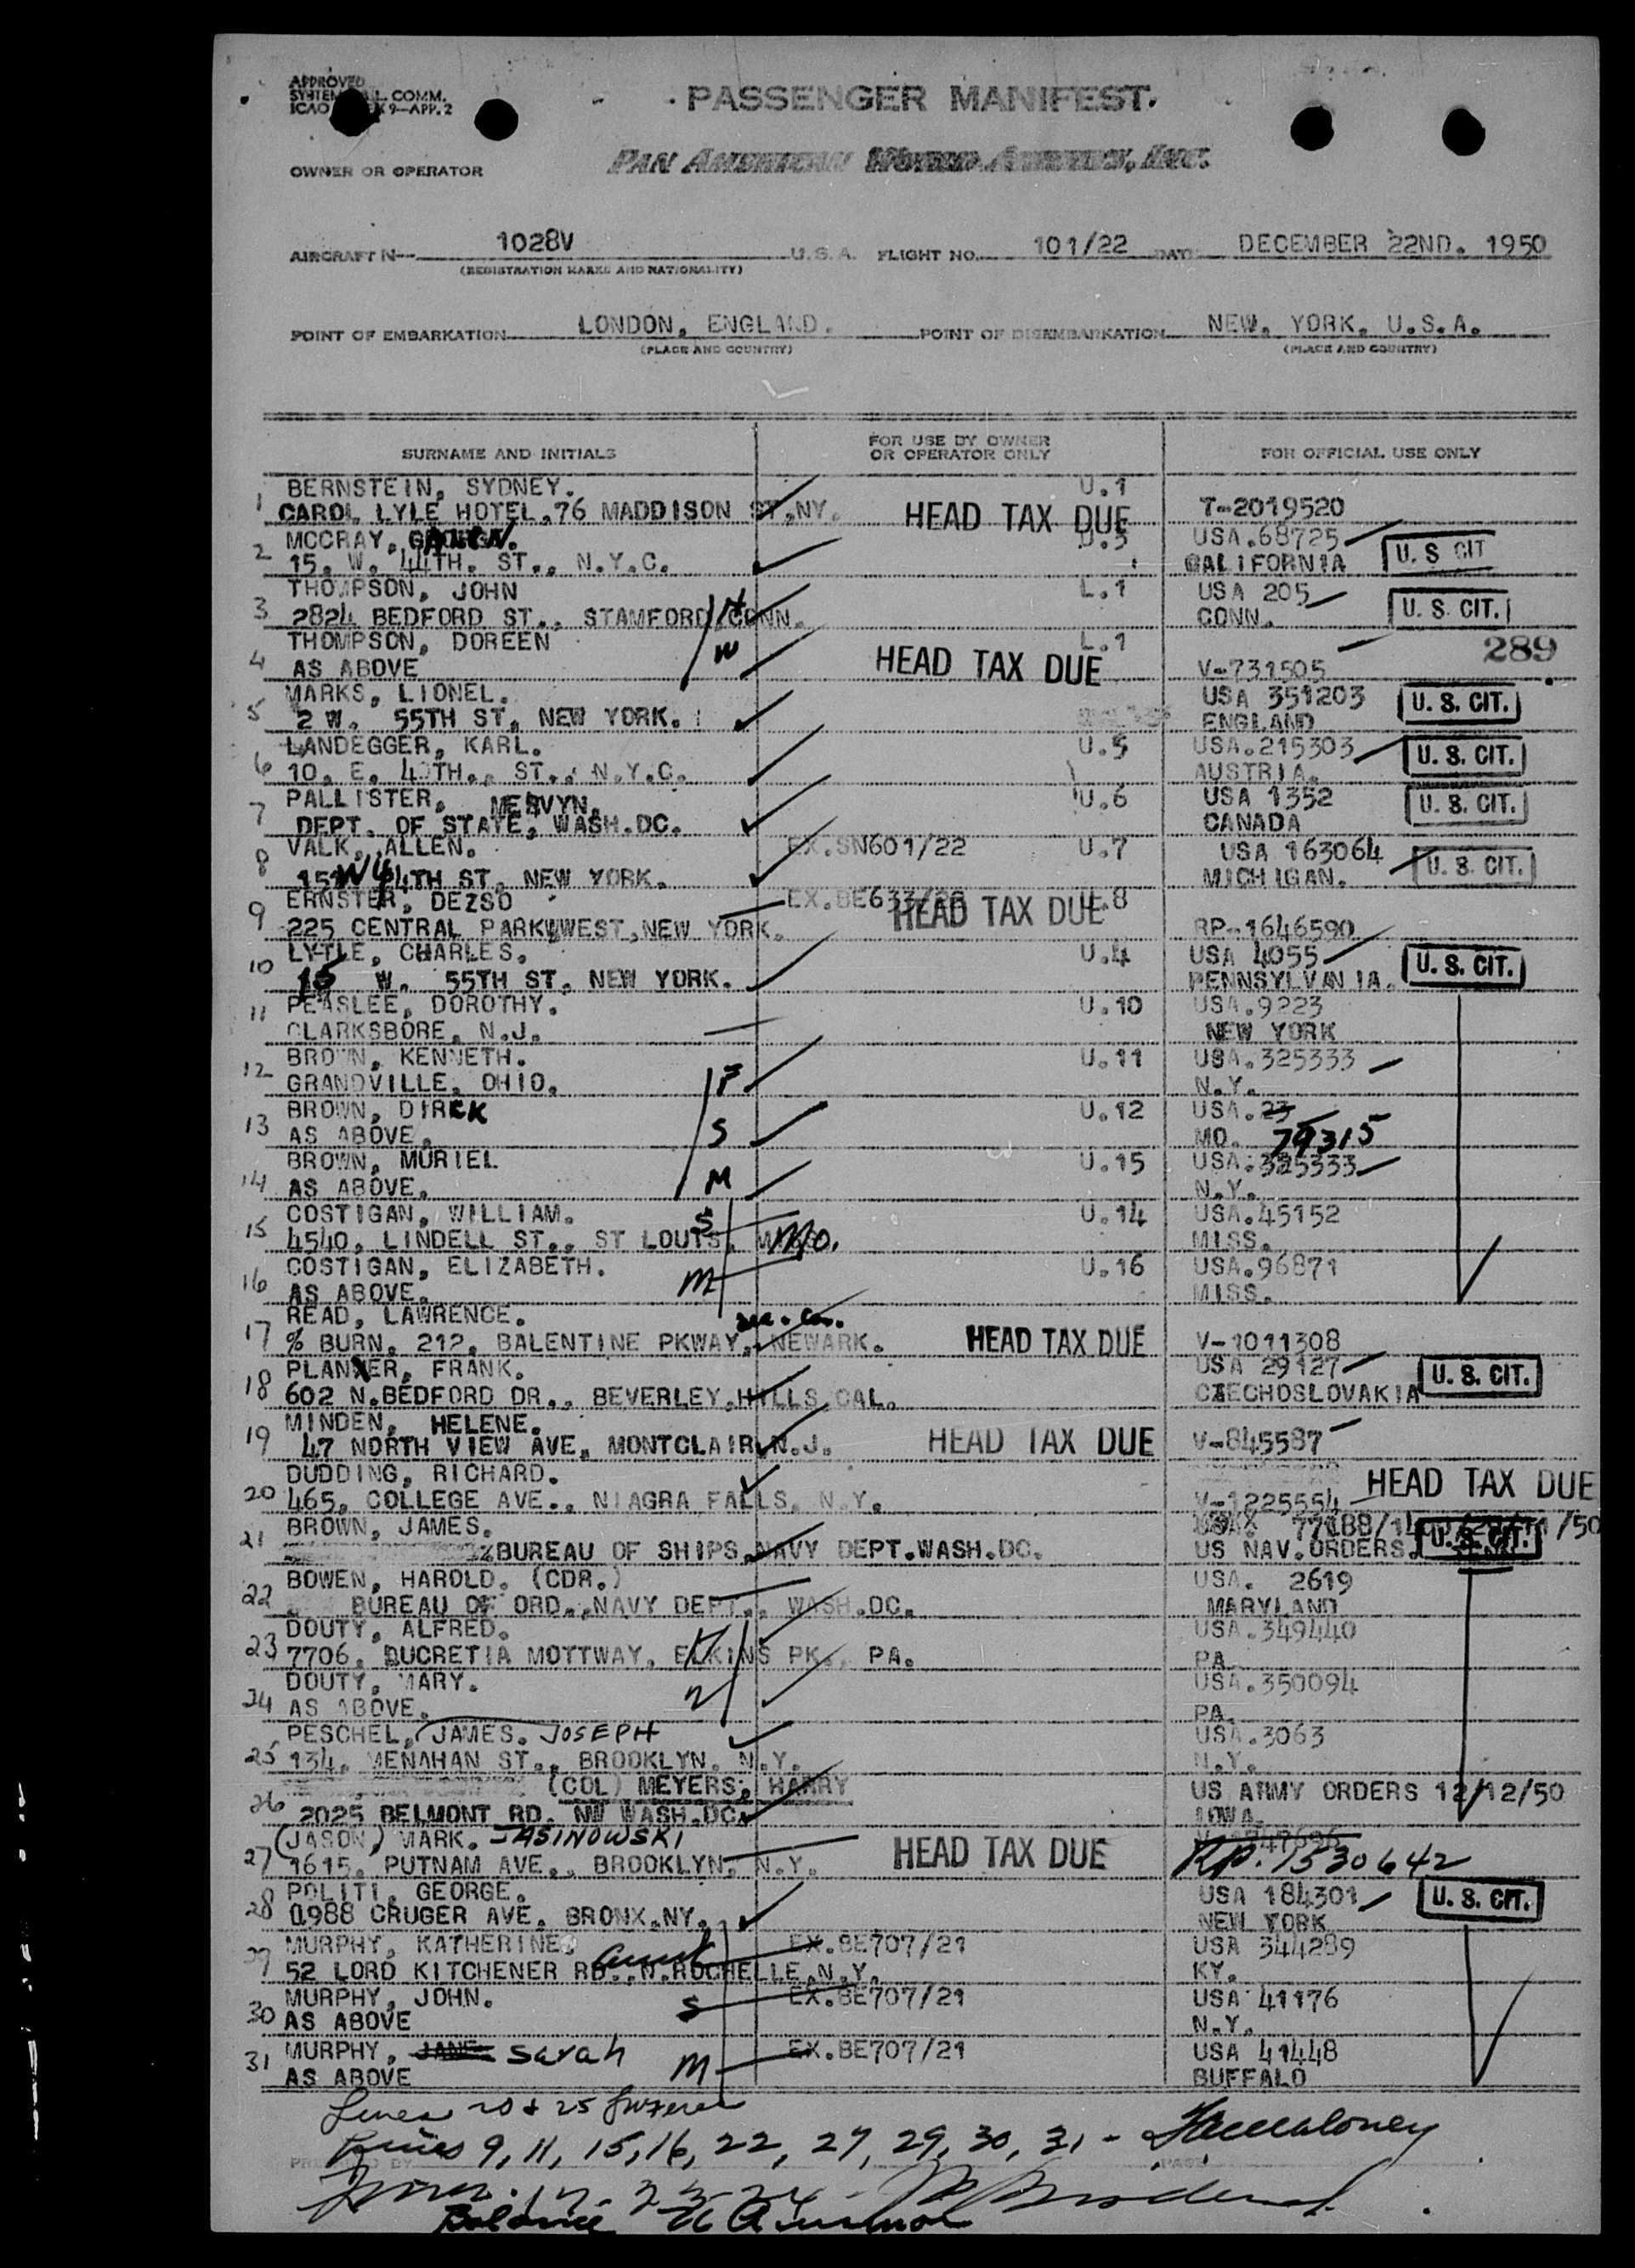 APPROVED
COMM.
ICAO 9—APP. 2
PASSENGER MANIFEST.
OWNER OR OPERATOR
PAN AMERICAN WORLD AIRWAYS, INC.
AIRCRAFT N— 1028V U.S.A. FLIGHT NO. 101/22 DATE DECEMBER 22ND. 1950
(REGISTRATION MARKS AND NATIONALITY)
POINT OF EMBARKATION LONDON, ENGLAND. POINT OF DISEMBARKATION NEW, YORK, U.S.A.
(PLACE AND COUNTRY) (PLACE AND COUNTRY)
SURNAME AND INITIALS FOR USE BY OWNER OR OPERATOR ONLY FOR OFFICIAL USE ONLY
BERNSTEIN, SYDNEY. U.1
1 CAROL LYLE HOTEL,76 MADDISON ST,NY. HEAD TAX DUE T-2019520
MCCRAY, U.3 USA.68725
2 15, W. 44TH. ST., N.Y.C. CALIFORNIA U. S CIT
THOMPSON, JOHN L.1 USA 205
3 2824 BEDFORD ST., STAMFORD, CONN. H CONN. U. S. CIT.
THOMPSON, DOREEN L.1 289
4 AS ABOVE W HEAD TAX DUE V-731505
MARKS, LIONEL. USA 351203
5 2 W. 55TH ST, NEW YORK. ENGLAND U. S. CIT.
LANDEGGER, KARL. U.5 USA.215303
6 10, E. 40TH., ST., N.Y.C. AUSTRIA. U. S. CIT.
PALLISTER, MERVYN. U.6 USA 1352
7 DEPT. OF STATE, WASH.DC. CANADA U. S. CIT.
VALK, ALLEN. EX.SN601/22 U.7 USA 163064
8 15 W 44TH ST, NEW YORK. MICHIGAN. U. S. CIT.
ERNSTER, DEZSO EX.BE633/20 U.8
9 225 CENTRAL PARK WEST,NEW YORK. HEAD TAX DUE RP-1646590
LYTLE, CHARLES. U.4 USA 4055
10 15 W. 55TH ST, NEW YORK. PENNSYLVANIA. U. S. CIT.
PEASLEE, DOROTHY. U.10 USA.9223
11 CLARKSBORE, N.J. NEW YORK
BROWN, KENNETH. U.11 USA.325333
12 GRANDVILLE, OHIO. F N.Y.
BROWN, DIRCK U.12 USA.23
13 AS ABOVE. S MO. 79315
BROWN, MURIEL U.15 USA.325333
14 AS ABOVE. M N.Y.
COSTIGAN, WILLIAM. S U.14 USA.45152
15 4540, LINDELL ST., ST LOUIS, Mo. MISS.
COSTIGAN, ELIZABETH. U.16 USA.96871
16 AS ABOVE. M MISS.
READ, LAWRENCE.
17 % BURN, 212, BALENTINE PKWAY, NEWARK. HEAD TAX DUE V-1011308
PLANXER, FRANK. USA 29127
18 602 N.BEDFORD DR., BEVERLEY,HILLS,CAL. CZECHOSLOVAKIA U. S. CIT.
MINDEN, HELENE.
19 47 NORTH VIEW AVE, MONTCLAIR, N.J. HEAD TAX DUE V-845587
DUDDING, RICHARD. HEAD TAX DUE
20 465, COLLEGE AVE., NIAGRA FALLS, N.Y. V-1225554
BROWN, JAMES.
21 %BUREAU OF SHIPS,NAVY DEPT.WASH.DC. US NAV.ORDERS. U. S. CIT.
BOWEN, HAROLD. (CDR.) USA. 2619
22 BUREAU OF ORD.,NAVY DEPT., WASH.DC. MARYLAND
DOUTY, ALFRED. USA.349440
23 7706, DUCRETIA MOTTWAY, ELKINS PK., PA. PA.
DOUTY, MARY. USA.350094
24 AS ABOVE. PA.
PESCHEL, JAMES. JOSEPH USA.3063
25 134, MENAHAN ST., BROOKLYN. N.Y. N.Y.
(COL) MEYERS, HARRY US ARMY ORDERS 12/12/50
26 2025 BELMONT RD. NW WASH.DC. IOWA
(JASON) MARK. JASINOWSKI
27 1615, PUTNAM AVE., BROOKLYN, N.Y. HEAD TAX DUE RP. 1530642
POLITI, GEORGE. USA 184301
28 0988 CRUGER AVE. BRONX.NY. NEW YORK U. S. CIT.
MURPHY, KATHERINE. EX.BE707/21 USA 344289
29 52 LORD KITCHENER RD.,N.ROCHELLE,N.Y. aunt KY.
MURPHY, JOHN. S EX.BE707/21 USA 41176
30 AS ABOVE N.Y.
MURPHY, JANE Sarah EX.BE707/21 USA 41448
31 AS ABOVE M BUFFALO
Lines 20 & 25
Lines 9, 11, 15, 16, 22, 27, 29, 30, 31 -
Balance